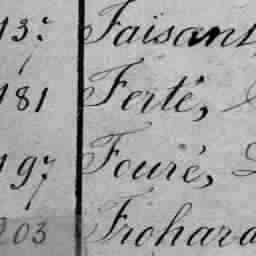 137 Faisant,
181 Ferté,
197 Fouré,
203 Frohard